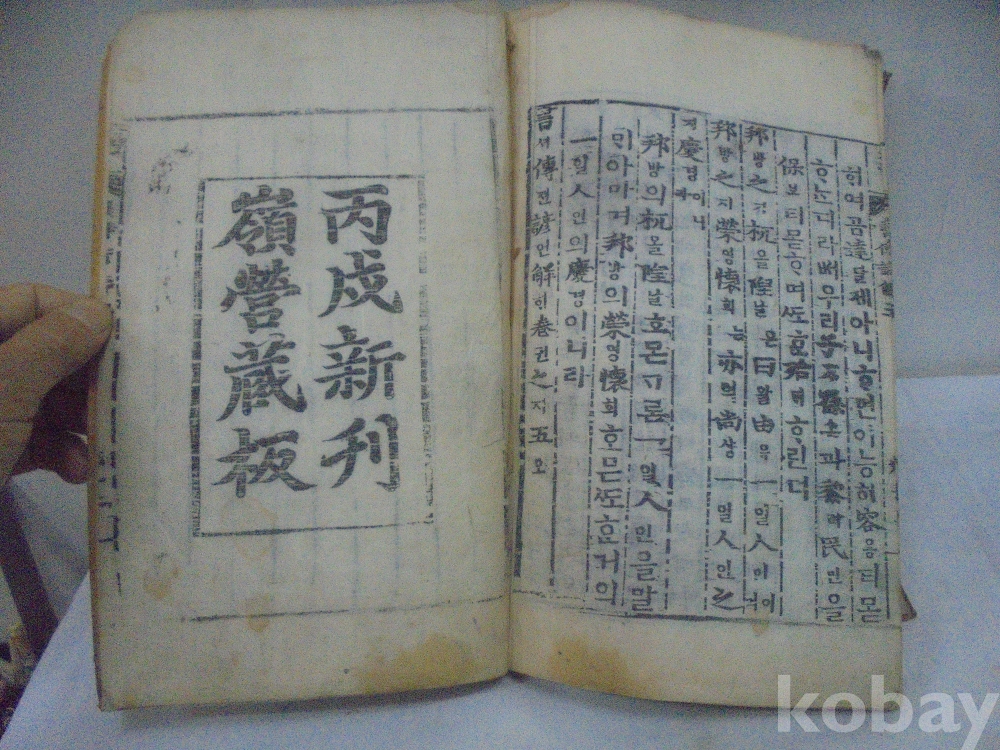 혀여곰達달케아니ᄒᆞ면이ᄂᆞᆼ히容용티몯
ᄒᆞᄂᆞ디라ᄡᅥ우리子ᄌᆞ孫손과黎려民민을
保보티몯ᄒᆞ며ᄯᅩᄒᆞᆫ殆ᄐᆡᄒᆞ린뎌
邦방之지杌올隉날은曰왈由유一일人인이
邦방之지榮영懷회ᄂᆞᆫ亦역尙샹一일人인之
지慶경이니
邦방의杌올隉날호ᄆᆞᆫᄀᆞ론一일人인을말
ᄆᆡ아마며邦방의榮영懷회호ᄆᆞᆫᄯᅩᄒᆞᆫ거의
一일人인의慶경이니라
書셔傳젼諺언解ᄒᆡ卷권之지五오
丙戌新刊
嶺營藏板
kobay